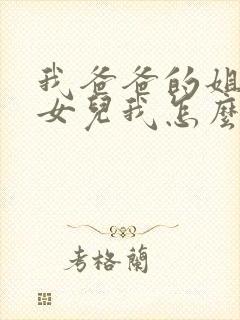 我爸爸的姐
女兒我怎麼
考格蘭